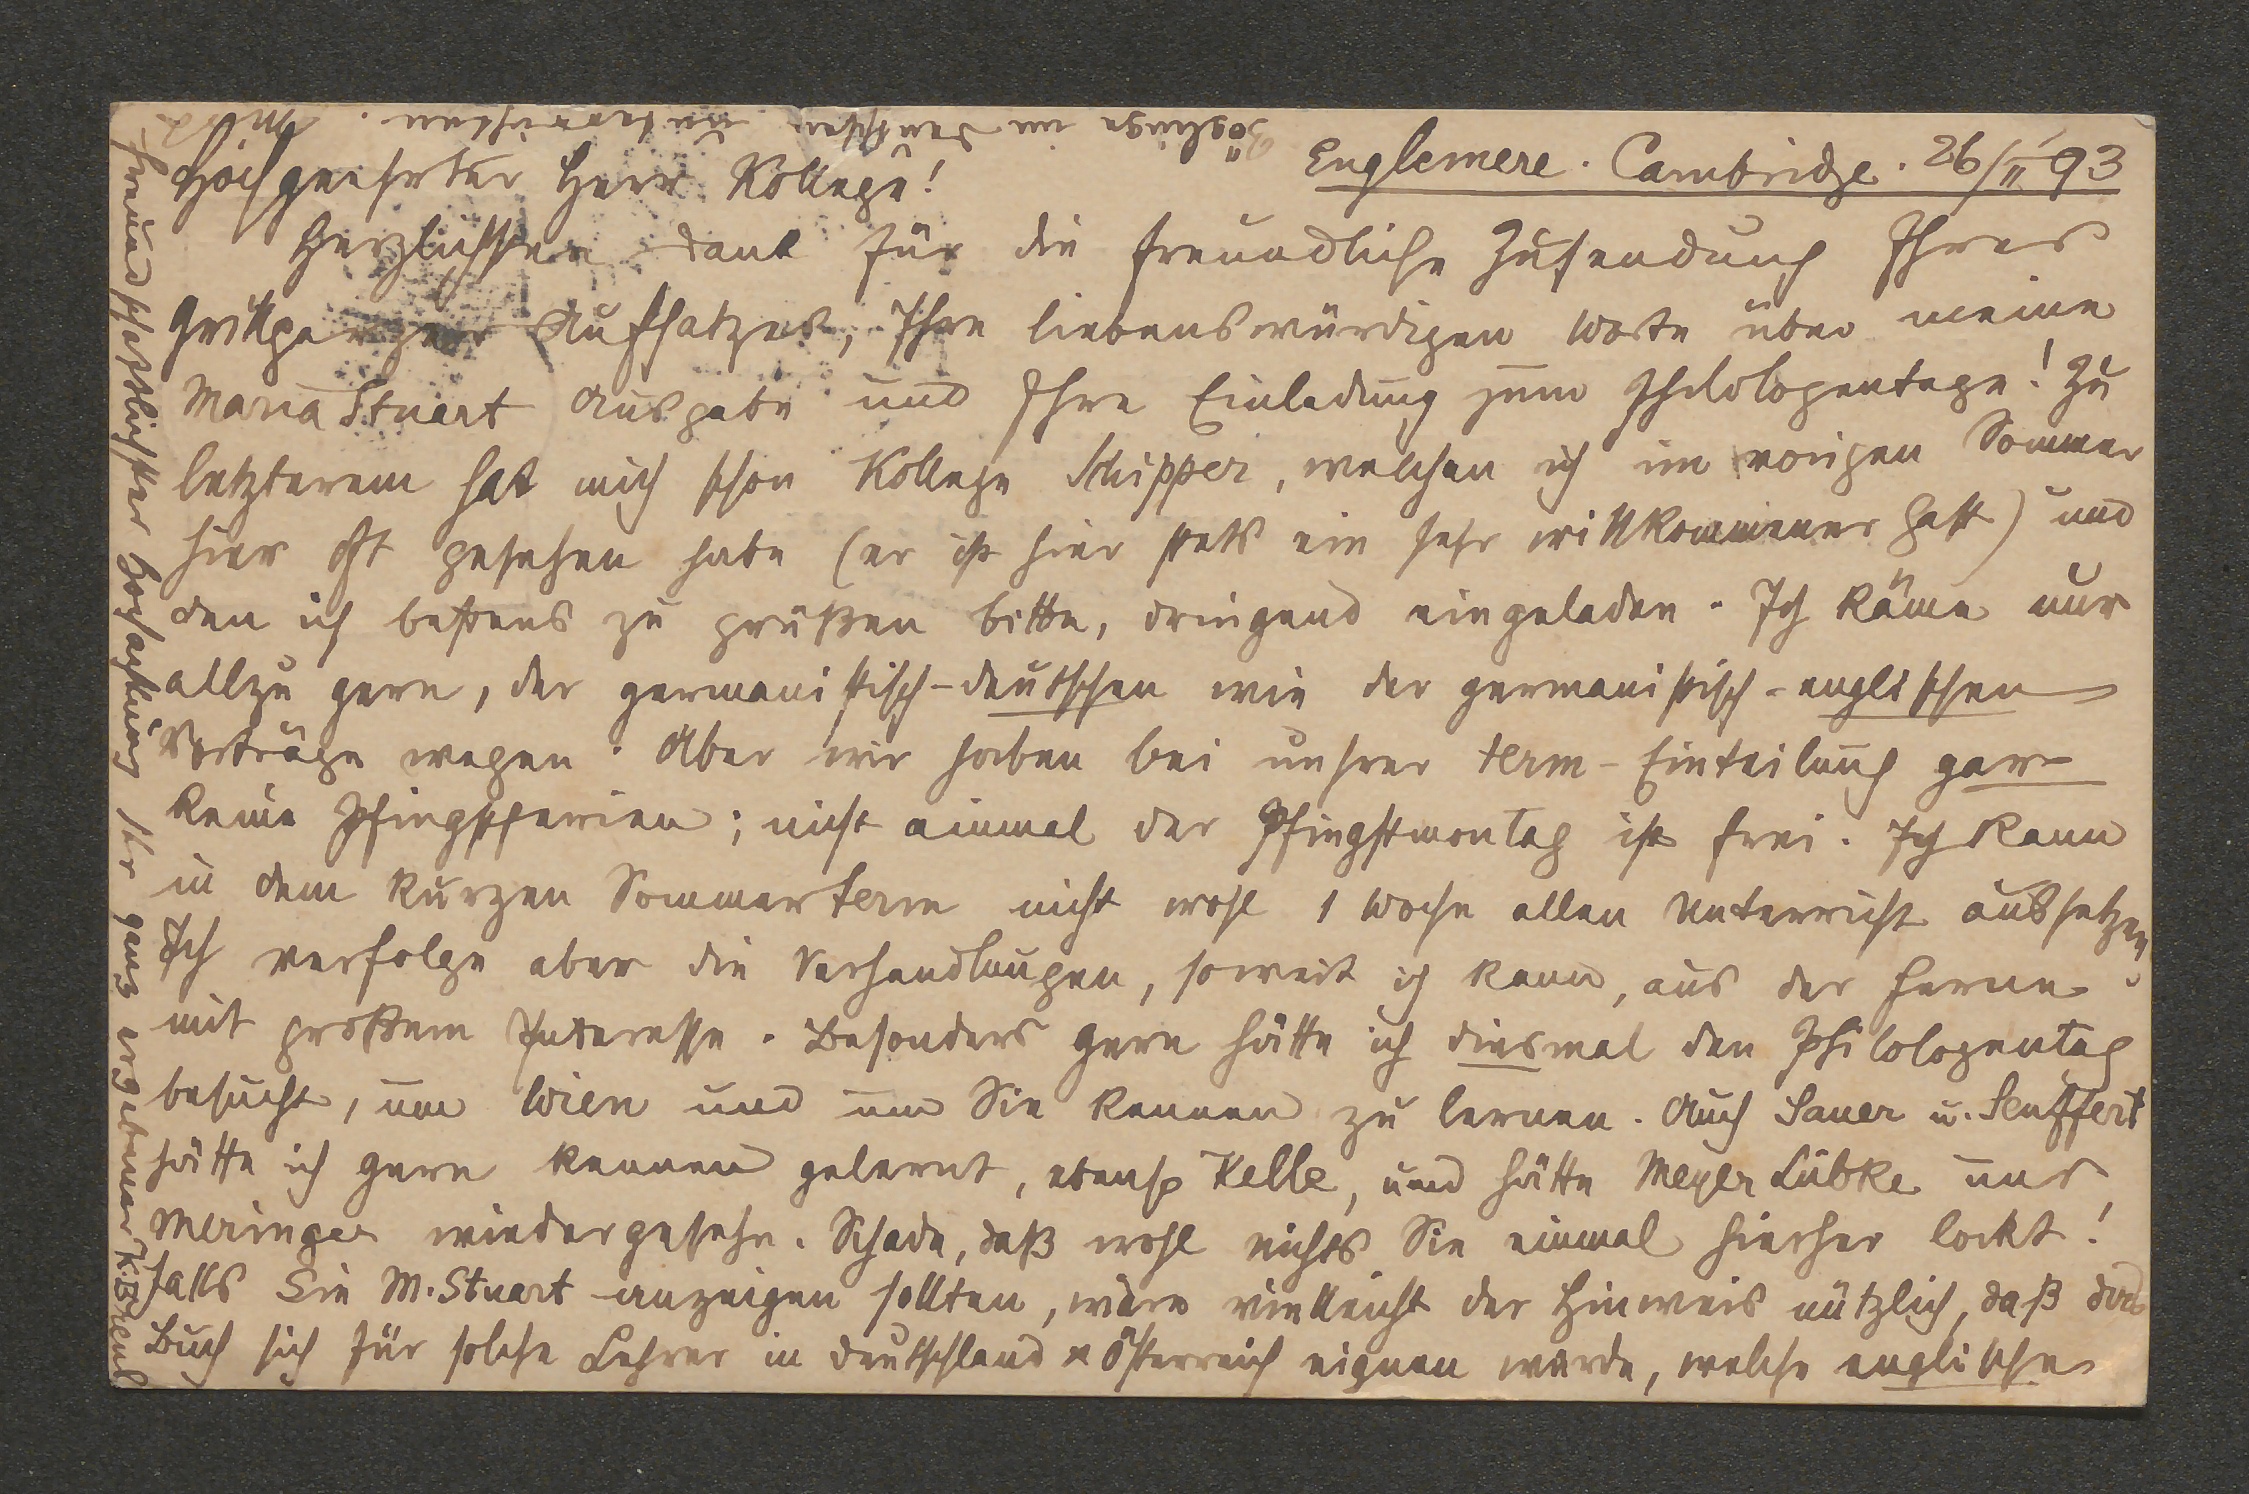 Englemere. Cambridge. 26/II 93
Hochgeehrter Herr Kollege!
Herzlichsten Dank für die freundliche Zusendung Ihres
Grillparzer Aufsatzes, Ihre liebenswürdigen Worte über meine
Maria Stuart Ausgabe und Ihre Einladung zum Philologentage! Zu
letzterem hat mich schon Kollege Schipper, welchen ich im vorigen Sommer
hier oft gesehen habe (er ist hier stets ein sehr willkommener Gast) und
den ich bestens zu grüßen bitte, dringend eingeladen. Ich käme nur
allzu gern, der germanistisch-deutschen wie der germanistisch-englischen
Vorträge wegen. Aber wir haben bei unsrer term-Einteilung gar
keine Pfingstferien; nicht einmal der Pfingstmontag ist frei. Ich kann
in dem kurzen Sommerterm nicht wohl 1 Woche allen Unterricht aussetzen.
Ich verfolge aber die Verhandlungen, soweit ich kann, aus der Ferne
mit großem Interesse. Besonders gern hätte ich diesmal den Philologentag
besucht, um Wien und um Sie kennen zu lernen. Auch Sauer u. Seuffert
hätte ich gern kennen gelernt, ebenso Kelle, und hätte Meyer Lübke und
Meringer wiedergesehn. Schade, daß wohl nichts Sie einmal hierher lockt!
Falls Sie M. Stuart anzeigen sollten, wäre vielleicht der Hinweis nützlich, daß das
Buch sich für solche Lehrer in Deutschland & Österreich eignen werde, welche englische
Zöglinge im Deutschen unterrichten. Mit
freundschaftlichster Hochachtung Ihr ganz ergebener K. Breul